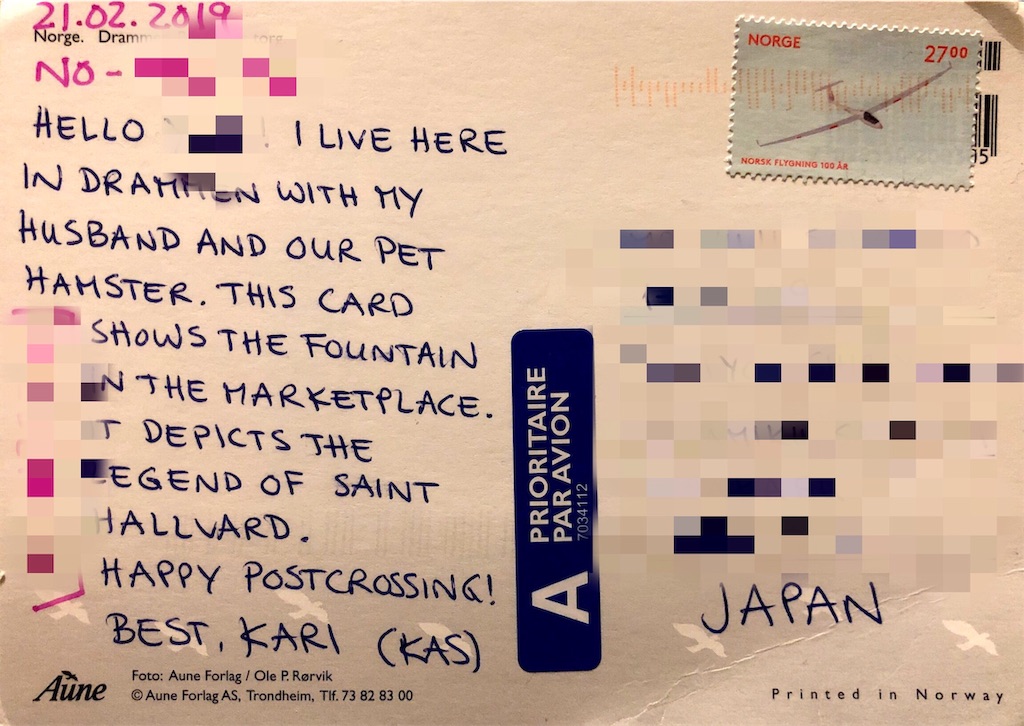 21.02.2019
Norge. Dramm
NO-
HELLO ! I LIVE HERE
IN DRAMMEN WITH MY
HUSBAND AND OUR PET
HAMSTER. THIS CARD
SHOWS THE FOUNTAIN
N THE MARKETPLACE.
T DEPICTS THE
EGEND OF SAINT
HALLVARD.
HAPPY POSTCROSSING!
BEST, KARI (KAS)
Aune
Foto: Aune Forlag / Ole P. Rørvik
© Aune Forlag AS, Trondheim, Tlf. 73 82 83 00
NORGE 27⁰⁰
NORSK FLYGNING 100 ÅR
A PRIORITAIRE
PAR AVION
7034112
JAPAN
Printed in Norway